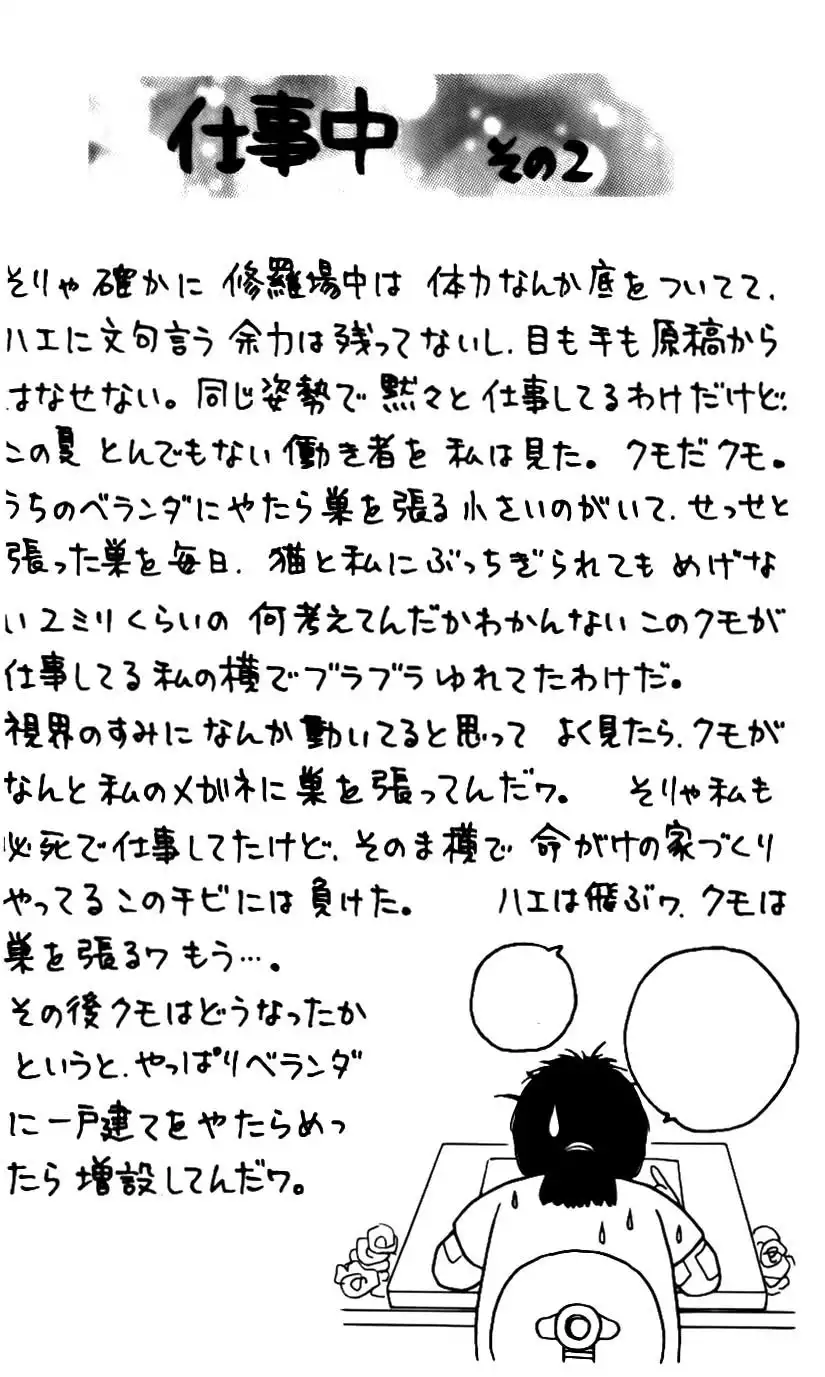 仕事中 その2
そりゃ確かに 修羅場中は 体力なんか底をついてて、
ハエに文句言う余力は残ってないし、目も手も原稿から
はなせない。同じ姿勢で黙々と仕事してるわけだけど、
この夏 とんでもない働き者を 私は見た。 クモだクモ。
うちのベランダにやたら巣を張る小さいのがいて、せっせと
張った巣を毎日、猫と私にぶっちぎられても めげな
い 2ミリくらいの 何考えてんだかわかんない このクモが
仕事してる私の横でブラブラゆれてたわけだ。
視界のすみに なんか動いてると思って よく見たら、クモが
なんと私のメガネに巣を張ってんだワ。 そりゃ私も
必死で仕事してたけど、そのま横で 命がけの家づくり
やってるこのチビには負けた。 ハエは飛ぶワ、クモは
巣を張るワ もう…。
その後クモはどうなったか
というと、やっぱりベランダ
に一戸建てをやたらめっ
たら増設してんだワ。